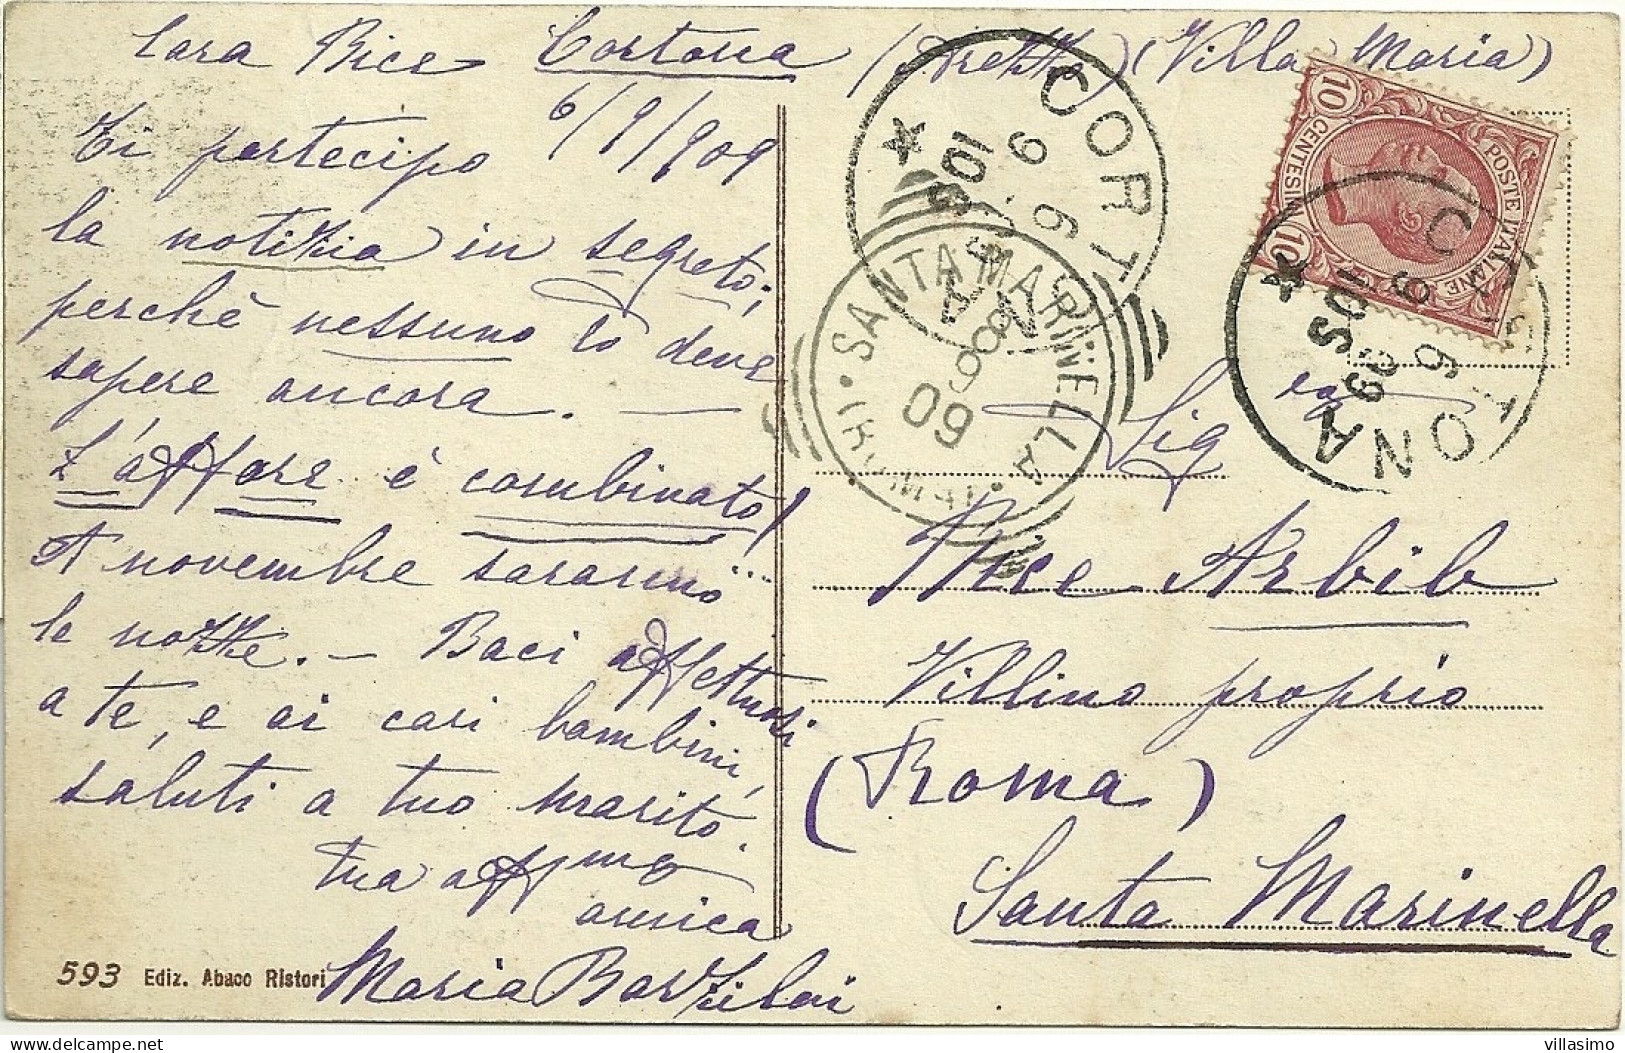 Cara Bice Cortona (Arezzo) (Villa Maria)
6/9/909
Ti partecipo
la notizia in segreto,
perchè nessuno lo deve
sapere ancora. —
L'affare è combinato!
A novembre saranno...
le nozze. — Baci affettuosi
a te, e ai cari bambini,
saluti a tuo marito.
tua affma
amica
Maria Barzilai
593 Ediz. Abaco Ristori
POSTE ITALIANE
CENTESIMI 10
10
CORTONA
6 9 09
10S
CORTONA
6 9 09
10S
SANTA MARINELLA
8 9 09
Sig ra
Bice Arbib
Villino proprio
(Roma)
Santa Marinella
villasimo